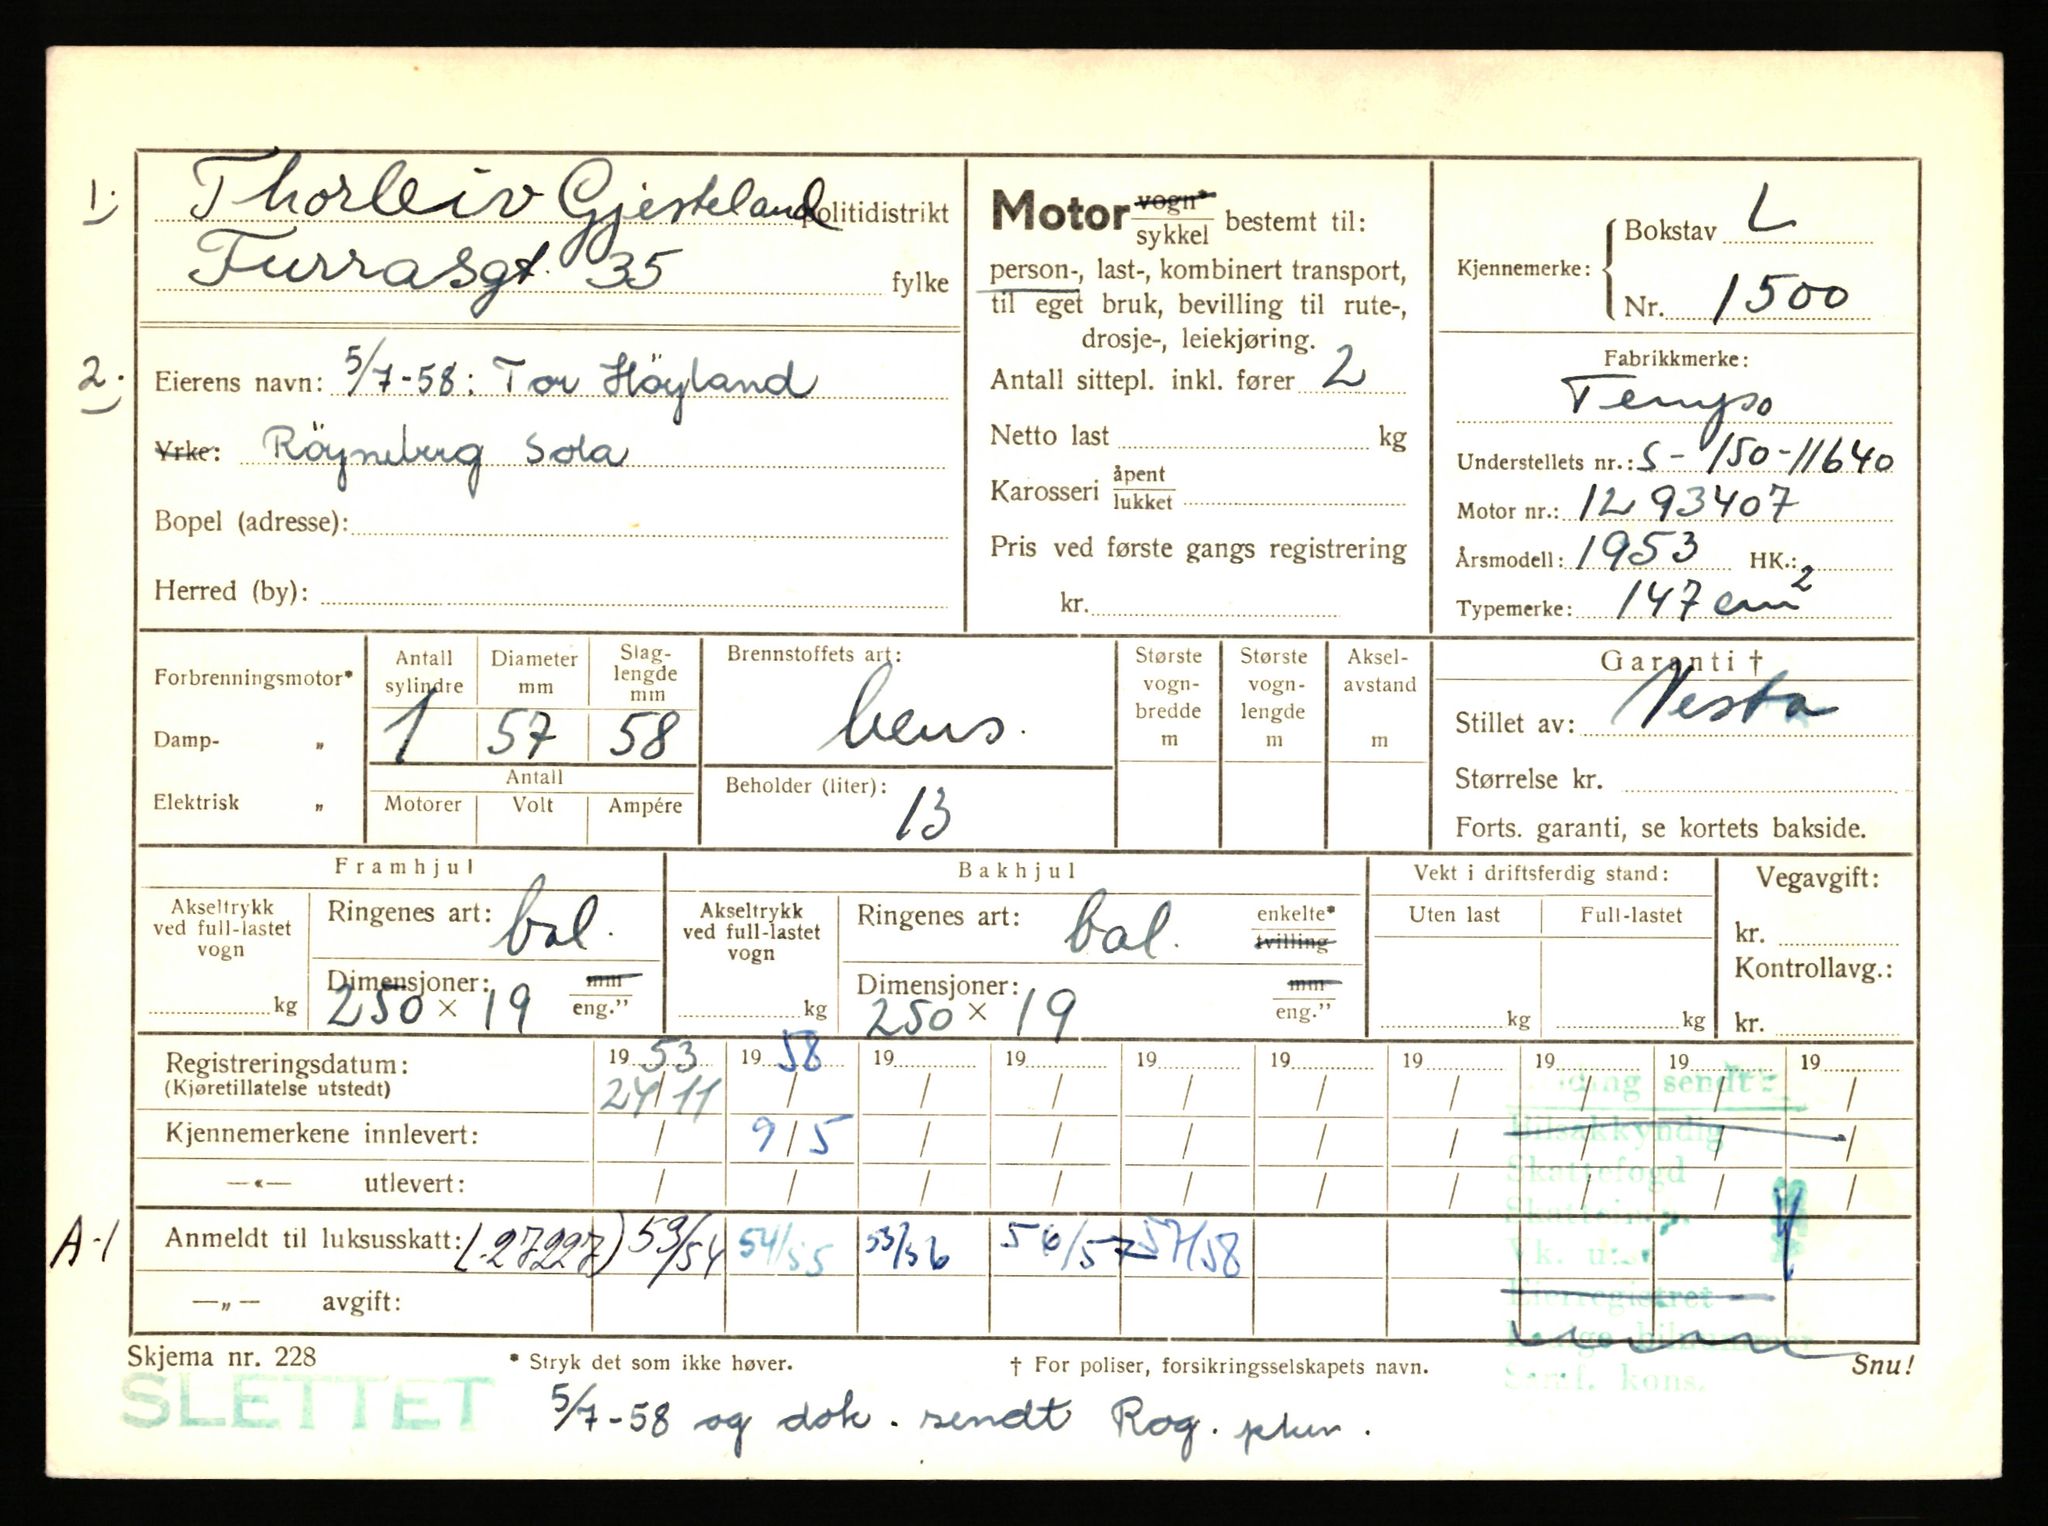 1. Thorleiv Gjesteland politidistrikt
Furrasgt. 35 fylke
2. Eierens navn: 5/7-58: Tor Höyland
Yrke: Röyneberg Sola
Bopel (adresse):
Herred (by):
Motor vogn* sykkel bestemt til:
person-, last-, kombinert transport,
til eget bruk, bevilling til rute-,
drosje-, leiekjøring.
Antall sittepl. inkl. fører 2
Netto last kg
Karosseri åpent lukket
Pris ved første gangs registrering
kr.
Kjennemerke: Bokstav L
Nr. 1500
Fabrikkmerke:
Tempo
Understellets nr.: S-150-11640
Motor nr.: 1293407
Årsmodell: 1953 HK.:
Typemerke: 147 cm2
Forbrenningsmotor*
Damp- „
Elektrisk „
Antall sylindre
1
Diameter mm
57
Slag-
lengde
mm
58
Antall
Motorer Volt Ampére
Brennstoffets art:
bens.
Beholder (liter):
13
Største
vogn-
bredde
m
Største
vogn-
lengde
m
Aksel-
avstand
m
Garanti †
Stillet av: Vesta
Størrelse kr.
Forts. garanti, se kortets bakside.
Framhjul
Akseltrykk
ved full-lastet
vogn
kg
Ringenes art: bal.
Dimensjoner: mm
250 x 19 eng.”
Bakhjul
Akseltrykk
ved full-lastet
vogn
kg
Ringenes art: bal. enkelte*
tvilling
Dimensjoner: mm
250 x 19 eng.”
Vekt i driftsferdig stand:
Uten last Full-lastet
kg kg
Vegavgift:
kr.
Kontrollavg.:
kr.
Registreringsdatum: 19 53 19 58 19 19 19 19 19 19 19 19
(Kjøretillatelse utstedt) 24/11 / / / / / / / / /
Kjennemerkene innlevert: / 9/5 / / / / / / / /
—«— utlevert: / / / / / / / / / /
A-1 Anmeldt til luksusskatt: (27227) 53/54 54/55 53/56 56/57 57/58
—„— avgift:
sendt:
Bilsakkyndig
Skattefogd
Vk. ut
Eierregistret
Samf. kons.
Skjema nr. 228 * Stryk det som ikke høver. † For poliser, forsikringsselskapets navn. Snu!
SLETTET
5/7-58 og dok. sendt Rog. pkm.